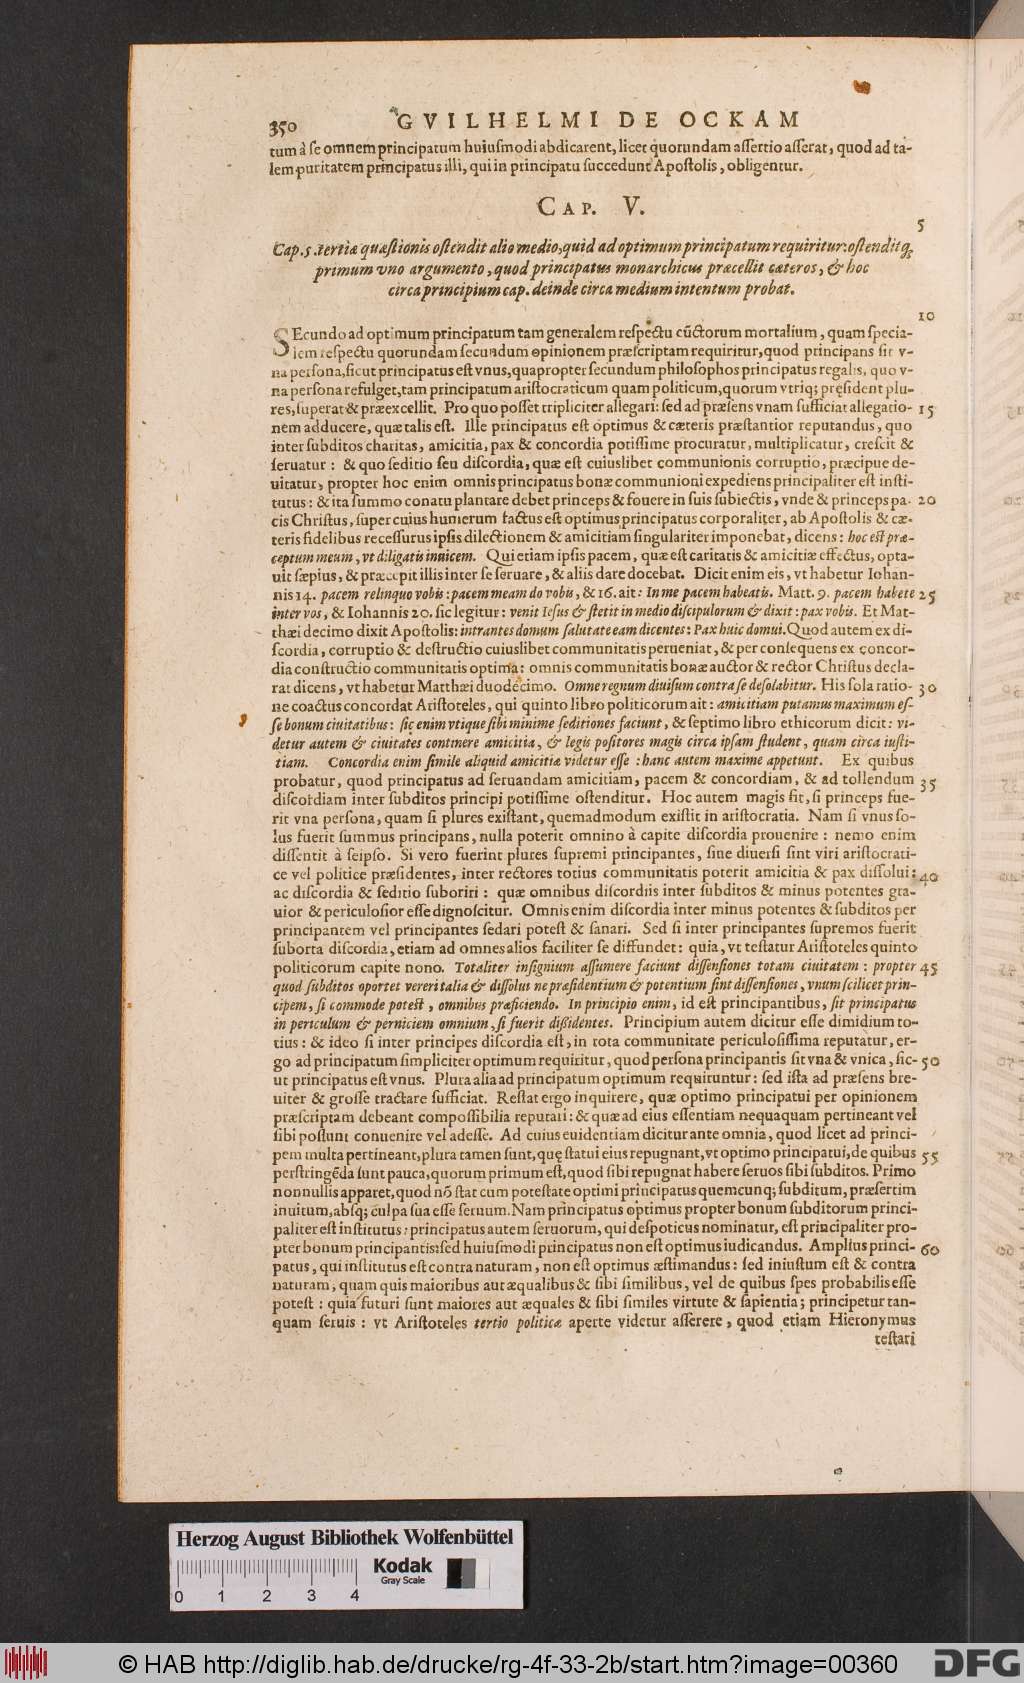 350 GVILHELMI DE OCKAM
tum à se omnem principatum huiusmodi abdicarent, licet quorundam assertio asserat, quod ad ta-
lem puritatem principatus illi, qui in principatu succedunt Apostolis, obligentur.
CAP. V.
5
Cap. 5. tertiæ quæstionis ostendit alio medio, quid ad optimum principatum requiritur: ostenditq;
primum vno argumento, quod principatus monarchicus præcellit cæteros, & hoc
circa principium cap. deinde circa medium intentum probat.
10
SEcundo ad optimum principatum tam generalem respectu cūctorum mortalium, quam specia-
lem respectu quorundam secundum opinionem præscriptam requiritur, quod principans sit v-
na persona, sicut principatus est vnus, quapropter secundum philosophos principatus regalis, quo v-
na persona refulget, tam principatum aristocraticum quam politicum, quorum vtriq; pręsident plu-
res, superat & præexcellit. Pro quo posset tripliciter allegari: sed ad præsens vnam sufficiat allegatio- 15
nem adducere, quæ talis est. Ille principatus est optimus & cæteris præstantior reputandus, quo
inter subditos charitas, amicitia, pax & concordia potissime procuratur, multiplicatur, crescit &
seruatur: & quo seditio seu discordia, quæ est cuiuslibet communionis corruptio, præcipue de-
uitatur, propter hoc enim omnis principatus bonæ communioni expediens principaliter est insti-
tutus: & ita summo conatu plantare debet princeps & fouere in suis subiectis, vnde & princeps pa- 20
cis Christus, super cuius humerum factus est optimus principatus corporaliter, ab Apostolis & cæ-
teris fidelibus recessurus ipsis dilectionem & amicitiam singulariter imponebat, dicens: hoc est præ-
ceptum meum, vt diligatis inuicem. Qui etiam ipsis pacem, quæ est caritatis & amicitiæ effectus, opta-
uit sæpius, & præcepit illis inter se seruare, & aliis dare docebat. Dicit enim eis, vt habetur Iohan-
nis 14. pacem relinquo vobis: pacem meam do vobis, & 16. ait: In me pacem habeatis. Matt. 9. pacem habete 25
inter vos, & Iohannis 20. sic legitur: venit Iesus & stetit in medio discipulorum & dixit: pax vobis. Et Mat-
thæi decimo dixit Apostolis: intrantes domum salutate eam dicentes: Pax huic domui. Quod autem ex di-
scordia, corruptio & destructio cuiuslibet communitatis perueniat, & per consequens ex concor-
dia constructio communitatis optima: omnis communitatis bonæ auctor & rector Christus decla-
rat dicens, vt habetur Matthæi duodecimo. Omne regnum diuisum contra se desolabitur. His sola ratio- 30
ne coactus concordat Aristoteles, qui quinto libro politicorum ait: amicitiam putamus maximum es-
se bonum ciuitatibus: sic enim vtique sibi minime seditiones faciunt, & septimo libro ethicorum dicit: vi-
detur autem & ciuitates continere amicitia, & legis positores magis circa ipsam student, quam circa iusti-
tiam. Concordia enim simile aliquid amicitiæ videtur esse: hanc autem maxime appetunt. Ex quibus
probatur, quod principatus ad seruandam amicitiam, pacem & concordiam, & ad tollendum 35
discordiam inter subditos principi potissime ostenditur. Hoc autem magis fit, si princeps fue-
rit vna persona, quam si plures existant, quemadmodum existit in aristocratia. Nam si vnus so-
lus fuerit summus principans, nulla poterit omnino à capite discordia prouenire: nemo enim
dissentit à seipso. Si vero fuerint plures supremi principantes, siue diuersi sint viri aristocrati-
ce vel politice præsidentes, inter rectores totius communitatis poterit amicitia & pax dissolui: 40
ac discordia & seditio suboriri: quæ omnibus discordiis inter subditos & minus potentes gra-
uior & periculosior esse dignoscitur. Omnis enim discordia inter minus potentes & subditos per
principantem vel principantes sedari potest & sanari. Sed si inter principantes supremos fuerit
suborta discordia, etiam ad omnes alios faciliter se diffundet: quia, vt testatur Aristoteles quinto
politicorum capite nono. Totaliter insignium assumere faciunt dissensiones totam ciuitatem: propter 45
quod subditos oportet vereri talia & dissolui ne præsidentium & potentium sint dissensiones, vnum scilicet prin-
cipem, si commode potest, omnibus præficiendo. In principio enim, id est principantibus, sit principatus
in periculum & perniciem omnium, si fuerit dißidentes. Principium autem dicitur esse dimidium to-
tius: & ideo si inter principes discordia est, in tota communitate periculosissima reputatur, er-
go ad principatum simpliciter optimum requiritur, quod persona principantis sit vna & vnica, sic- 50
ut principatus est vnus. Plura alia ad principatum optimum requiruntur: sed ista ad præsens bre-
uiter & grosse tractare sufficiat. Restat ergo inquirere, quæ optimo principatui per opinionem
præscriptam debeant compossibilia reputari: & quæ ad eius essentiam nequaquam pertineant vel
sibi possunt conuenire vel adesse. Ad cuius euidentiam dicitur ante omnia, quod licet ad princi-
pem multa pertineant, plura tamen sunt, quę statui eius repugnant, vt optimo principatui, de quibus 55
perstringēda sunt pauca, quorum primum est, quod sibi repugnat habere seruos sibi subditos. Primo
nonnullis apparet, quod nō stat cum potestate optimi principatus quemcunq; subditum, præsertim
inuitum, absq; culpa sua esse seruum. Nam principatus optimus propter bonum subditorum princi-
paliter est institutus: principatus autem seruorum, qui despoticus nominatur, est principaliter pro-
pter bonum principantis: sed huiusmodi principatus non est optimus iudicandus. Amplius princi- 60
patus, qui institutus est contra naturam, non est optimus æstimandus: sed iniustum est & contra
naturam, quam quis maioribus aut æqualibus & sibi similibus, vel de quibus spes probabilis esse
potest: quia futuri sunt maiores aut æquales & sibi similes virtute & sapientia; principetur tan-
quam seruis: vt Aristoteles tertio politicæ aperte videtur asserere, quod etiam Hieronymus
testari
Herzog August Bibliothek Wolfenbüttel
Kodak
Gray Scale
0 1 2 3 4
© HAB http://diglib.hab.de/drucke/rg-4f-33-2b/start.htm?image=00360
DFG